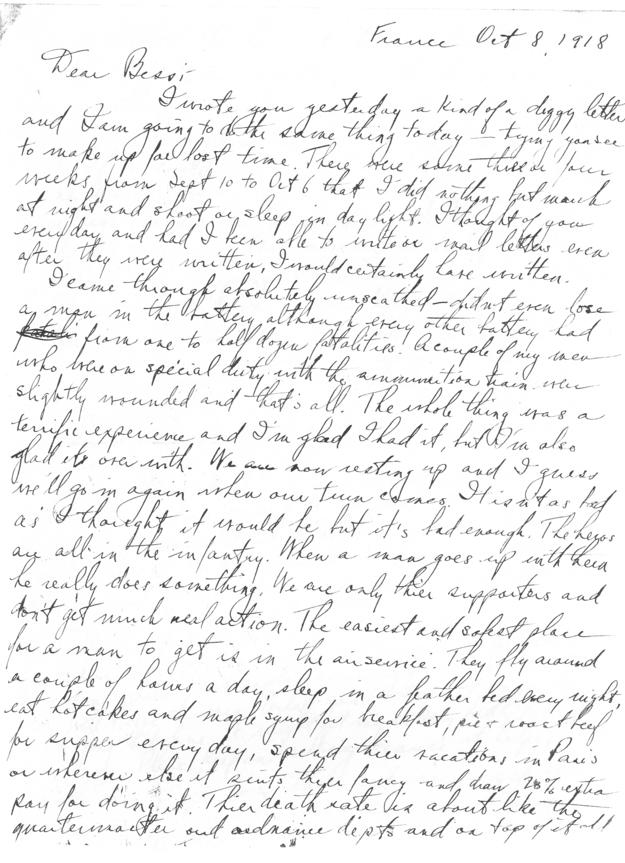 France Oct 8, 1918
Dear Bess:
I wrote you yesterday a kind of a diggy letter
and I am going to do the same thing today - trying you see
to make up for lost time. There were some three or four
weeks from Sept 10 to Oct 6 that I did nothing but march
at night and shoot or sleep in day light. I thought of you
every day and had I been able to write or mail letters even
after they were written, I would certainly have written.
I came through absolutely unscathed - didn't even lose
a man in the battery although every other battery had
from one to half dozen fatalities. A couple of my men
who were on special duty with the ammunition train were
slightly wounded and that's all. The whole thing was a
terrific experience and I'm glad I had it, but I'm also
glad its over with. We are now resting up and I guess
we'll go in again when our turn comes. It isn't as bad
as I thought it would be but it's bad enough. The heros
are all in the infantry. When a man goes up with them
he really does something. We are only thier supporters and
don't get much real action. The easiest and safest place
for a man to get is in the air service. They fly around
a couple of hours a day, sleep in a feather bed every night,
eat hotcakes and maple syrup for breakfast, pie & roast beef
for supper every day, spend thier vacations in Paris
or wherever else it suits thier fancy and draw % extra
pay for doing it. Thier death rate is about like the
quartermaster and ordnance depts and on top of it all